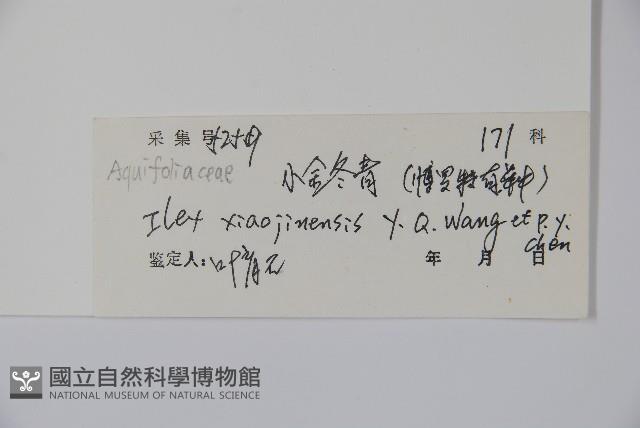 采集号 171 科
Aquifoliaceae 小金冬青 (博罗特有种)
Ilex xiaojinensis Y. Q. Wang et P. Y. Chen
鉴定人: 叶 年 月 日
國立自然科學博物館
NATIONAL MUSEUM OF NATURAL SCIENCE